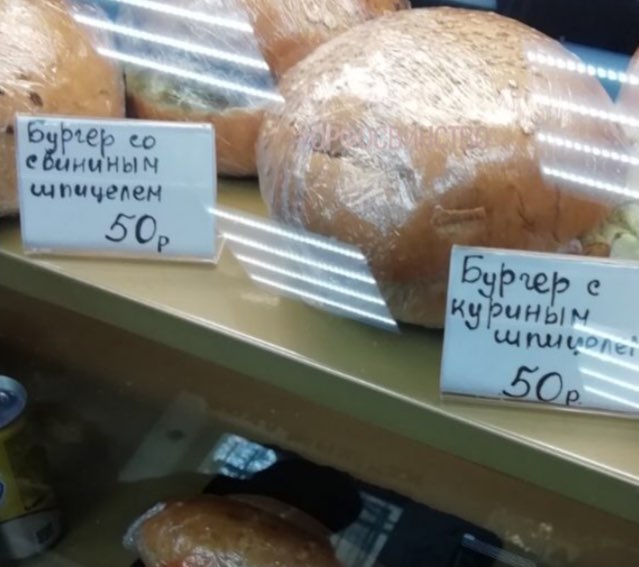 Бургер со
свининым
шпицелем
50р
Бургер с
куриным
шпицелем
50р